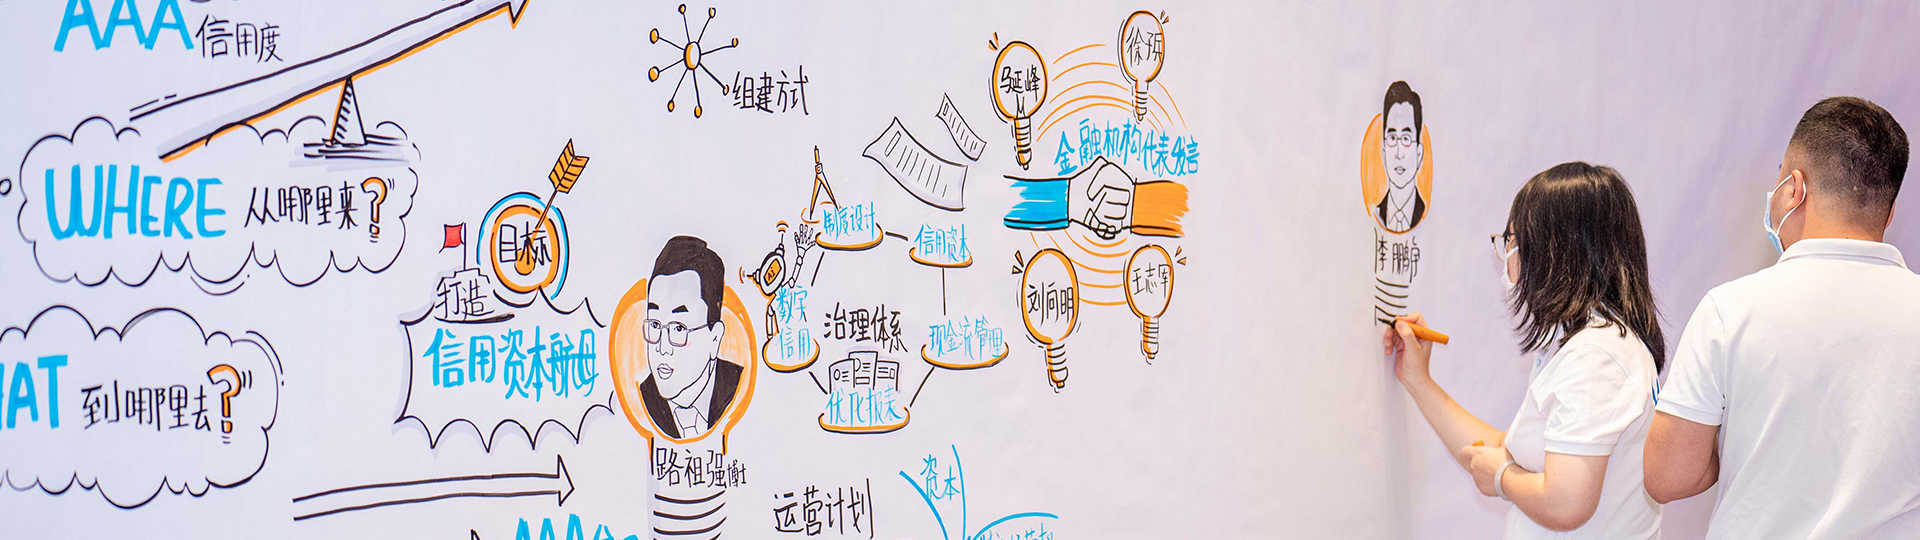 AAA信用度
WHERE 从哪里来?
AT 到哪里去?
目标
打造
信用资本航母
组建方式
路祖强博士
制度设计
信用资本
数字
信用
治理体系
现金流管理
优化报表
运营计划
资本
AAA信
马延峰
徐兵
金融机构代表发言
刘向明
王志军
李鹏宇